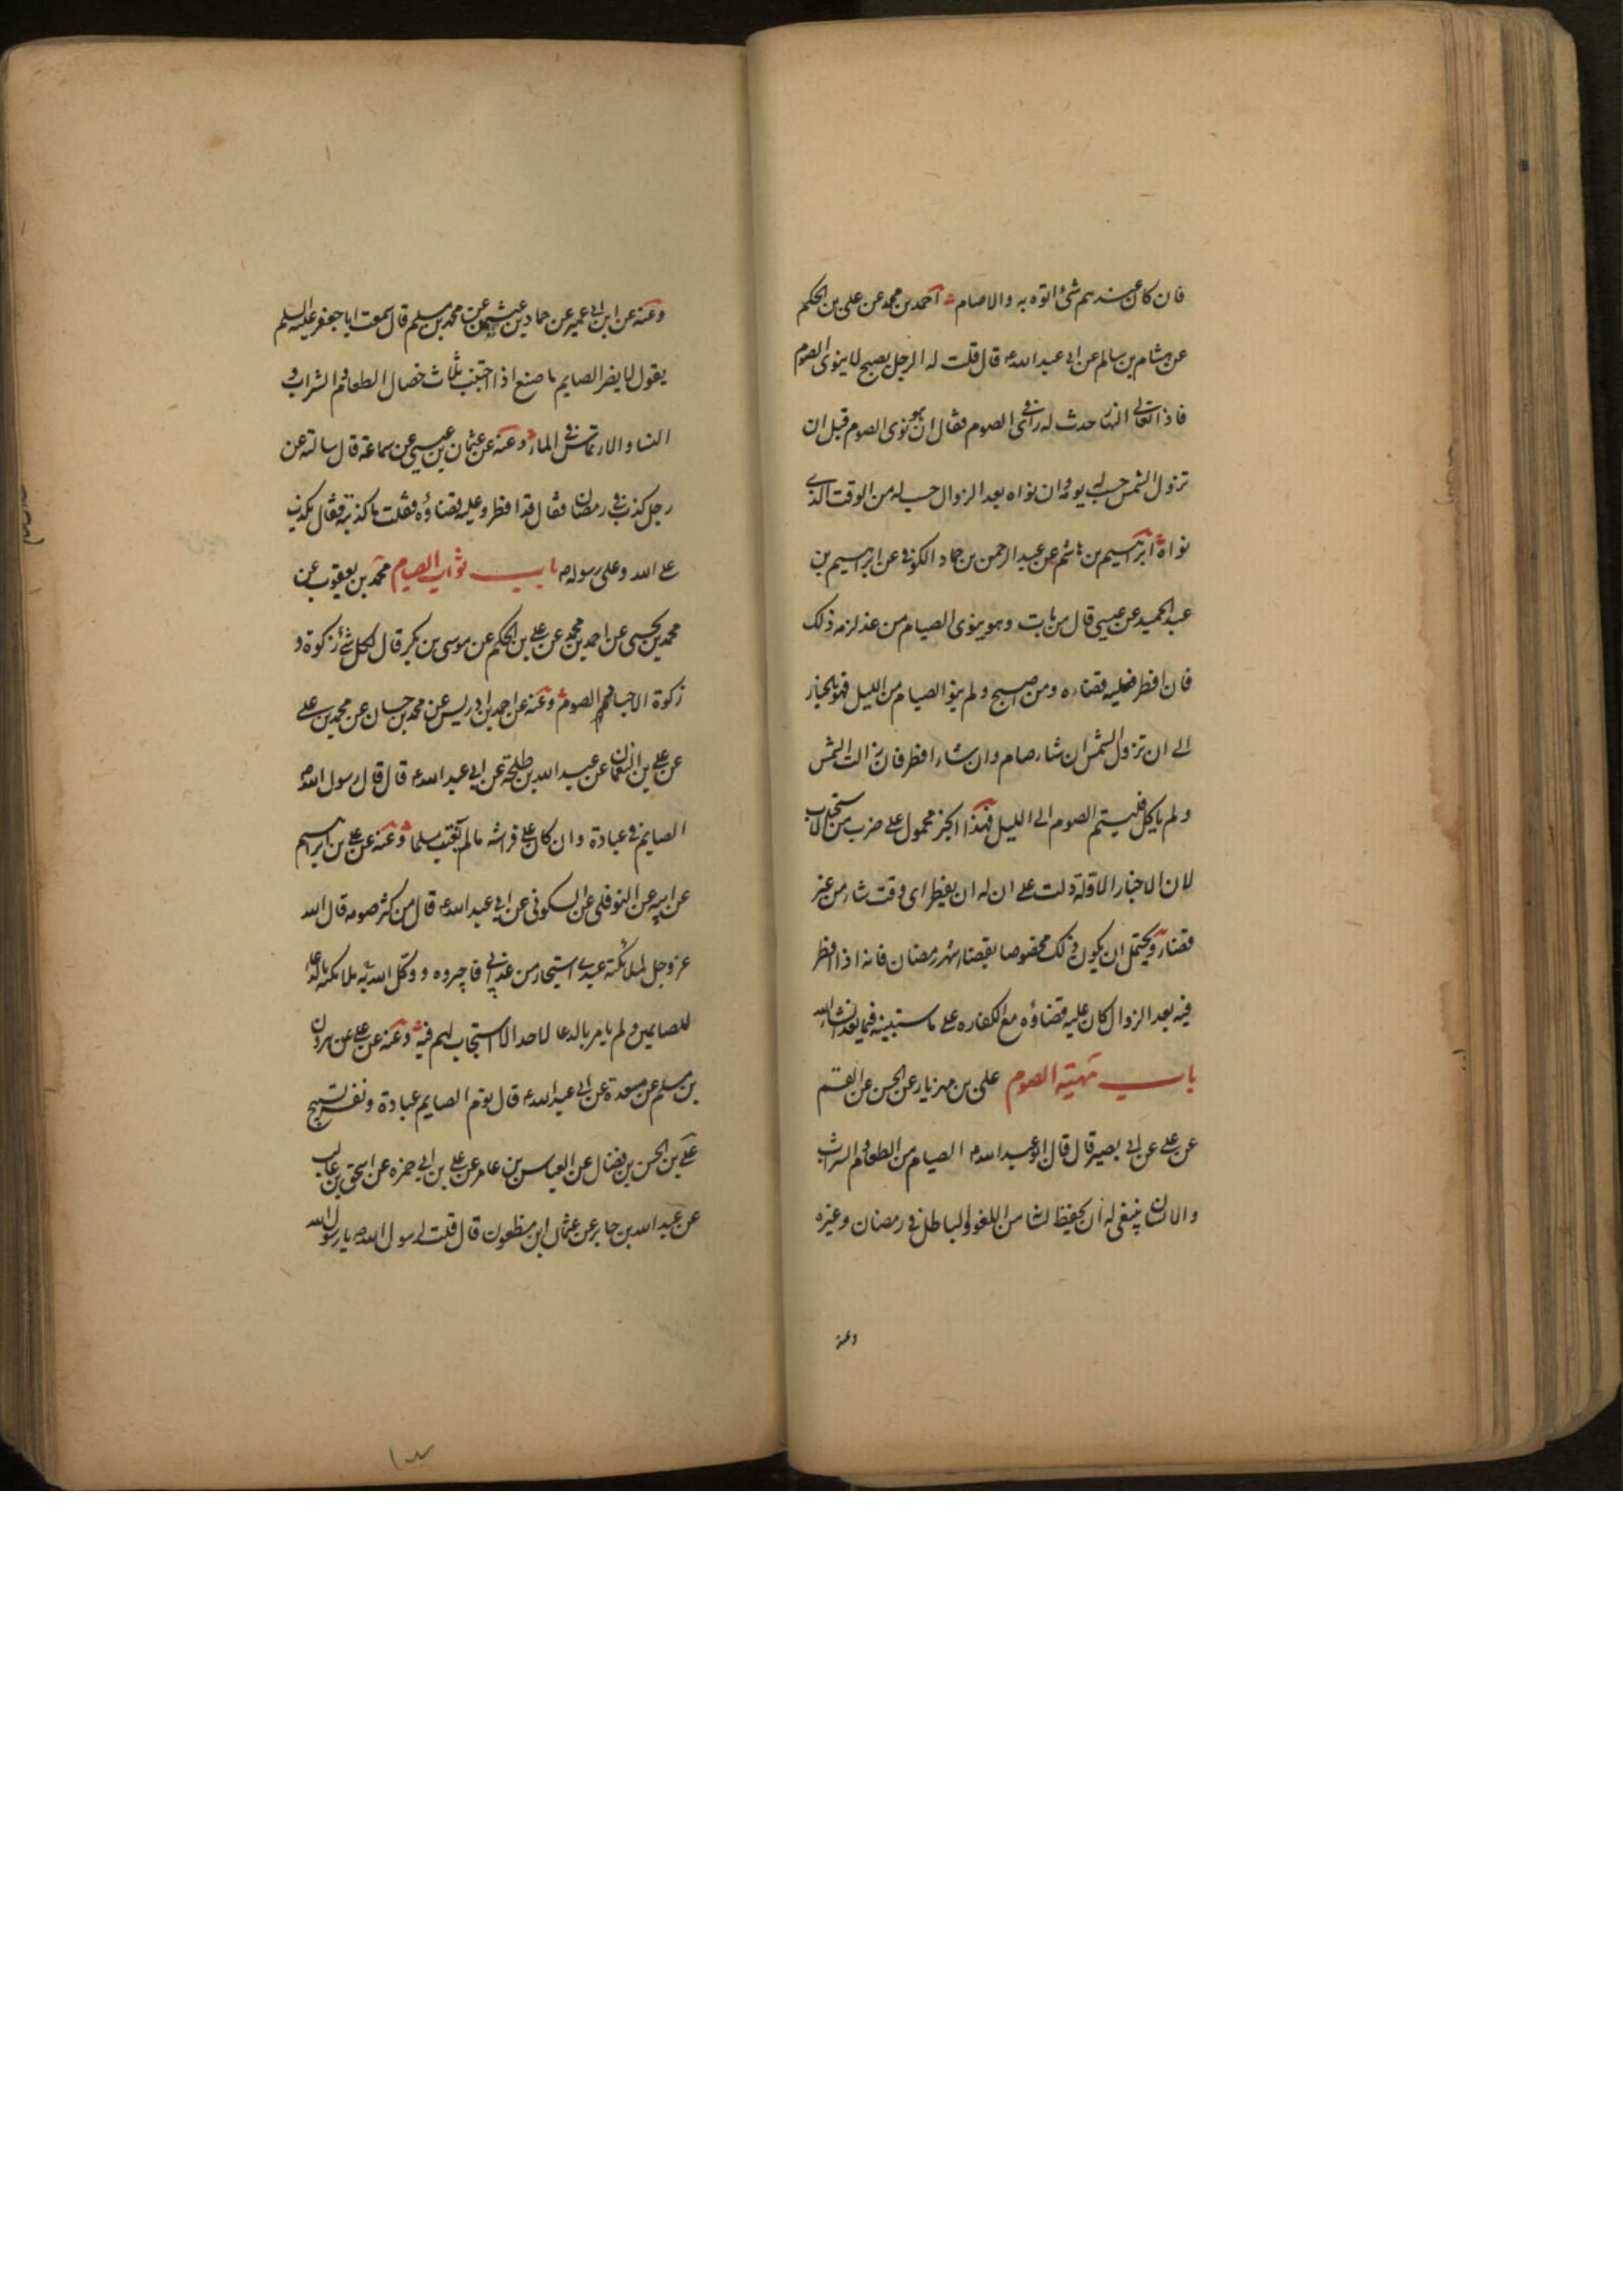 فان كان عندهم شئ اتوه به والا صام احمد بن محمد عن على بن الحكم
عن هشام بن سالم عن ابى عبد الله ع قال قلت له الرجل يصبح لا ينوى الصوم
فاذا تعالى النهار حدث له راى فى الصوم فقال ان هو نوى الصوم قبل ان
تزول الشمس حسب له يومه وان نواه بعد الزوال حسب له من الوقت الذى
نواه ابرهيم بن هاشم عن عبد الرحمن بن حماد الكوفى عن ابرهيم بن
عبد الحميد عن عيسى قال من بات وهو ينوى الصيام من غد لزمه ذلك
فان افطر فعليه قضاءه ومن اصبح ولم ينو الصيام من الليل فهو بالخيار
الى ان تزول الشمس ان شاء صام وان شاء افطر فان زالت الشمس
ولم ياكل فليتم الصوم الى الليل فهذا الخبر محمول على ضرب من الاستحباب
لان الاخبار الاولة دلت على ان له ان يفطر اى وقت شاء من غير
قضاء ويحتمل ان يكون ذلك مخصوصا بقضاء شهر رمضان فانه اذا افطر
فيه بعد الزوال كان عليه قضاؤه مع الكفاره على ما سنبينه فيما بعد انشاء الله
باب مهية الصوم على بن مهزيار عن الحسن عن القسم
عن على عن ابى بصير قال قال ابو عبد الله ع الصيام من الطعام والشراب
والانسان ينبغى له ان يحفظ لسانه من اللغو والباطل فى رمضان وغيره
وعنه
وعنه عن ابن ابى عمير عن حماد بن عثمن عن محمد بن مسلم قال سمعت ابا جعفر عليه السلم
يقول لا يضر الصايم ما صنع اذا اجتنب ثلاث خصال الطعام والشراب و
النساء والارتماس فى الماء وعنه عن عثمان بن عيسى عن سماعة قال سالته عن
رجل كذب فى رمضان فقال قد افطر وعليه قضاؤه فقلت ما كذبته فقال يكذب
على الله وعلى رسوله ص باب ثواب الصيام محمد بن يعقوب عن
محمد بن يحيى عن احمد بن محمد عن على بن الحكم عن موسى بن بكر قال لكل شئ زكوة و
زكوة الاجسام الصوم وعنه عن احمد بن ادريس عن محمد بن حسان عن محمد بن على
عن على بن النعمان عن عبد الله بن طلحة عن ابى عبد الله ع قال قال رسول الله ص
الصايم فى عبادة وان كان على فراشه ما لم يغتب مسلما وعنه عن على بن ابرهيم
عن ابيه عن النوفلى عن السكونى عن ابى عبد الله ع قال من كثر صومه قال الله
عز وجل لملائكته عبدى استجار من عذابى فاجيروه ووكل الله به ملائكته بالدعا
للصايمين ولم يامر بالدعا لاحد الا استجاب لهم فيه وعنه عن على عن هرون
بن مسلم عن مسعدة عن ابى عبد الله ع قال نوم الصايم عبادة ونفسه تسبيح
على بن الحسن بن فضال عن العباس بن عامر عن على بن ابى حمزه عن اسحق بن غالب
عن عبد الله بن جابر عن عثمان ابن مظعون قال قلت لرسول الله ص يا رسول الله